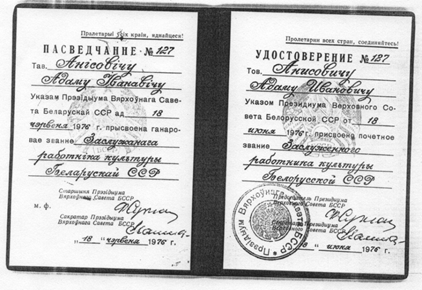 Пралетарыі ўсіх краін, яднайцеся!
ПАСВЕДЧАННЕ № 127
Тав. Анісовічу
Адаму Іванавічу
Указам Прэзідыума Вярхоўнага Саве-
та Беларускай ССР ад 18
чэрвеня 1976 г. прысвоена ганаро-
вае званне Заслужанага
работніка культуры
Беларускай ССР
Старшыня Прэзідыума
Вярхоўнага Савета БССР
м. ф.
Сакратар Прэзідыума
Вярхоўнага Савета БССР
„ 18 " чэрвеня 1976 г.
Пролетарии всех стран, соединяйтесь!
УДОСТОВЕРЕНИЕ № 127
Тов. Анисовичу
Адаму Ивановичу
Указом Президиума Верховного Со-
вета Белорусской ССР от 18
июня 1976 г. присвоено почетное
звание Заслуженного
работника культуры
Белорусской ССР
Председатель Президиума
Верховного Совета БССР
Верховного Совета БССР
июня 1976 г.
Прэзідыум Вярхоўнага Савета БССР